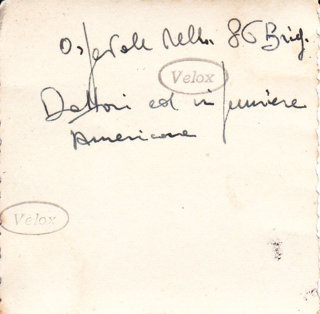 Ospedale della 86 Brig.
Velox
Dottori ed infermiere
Americane
Velox